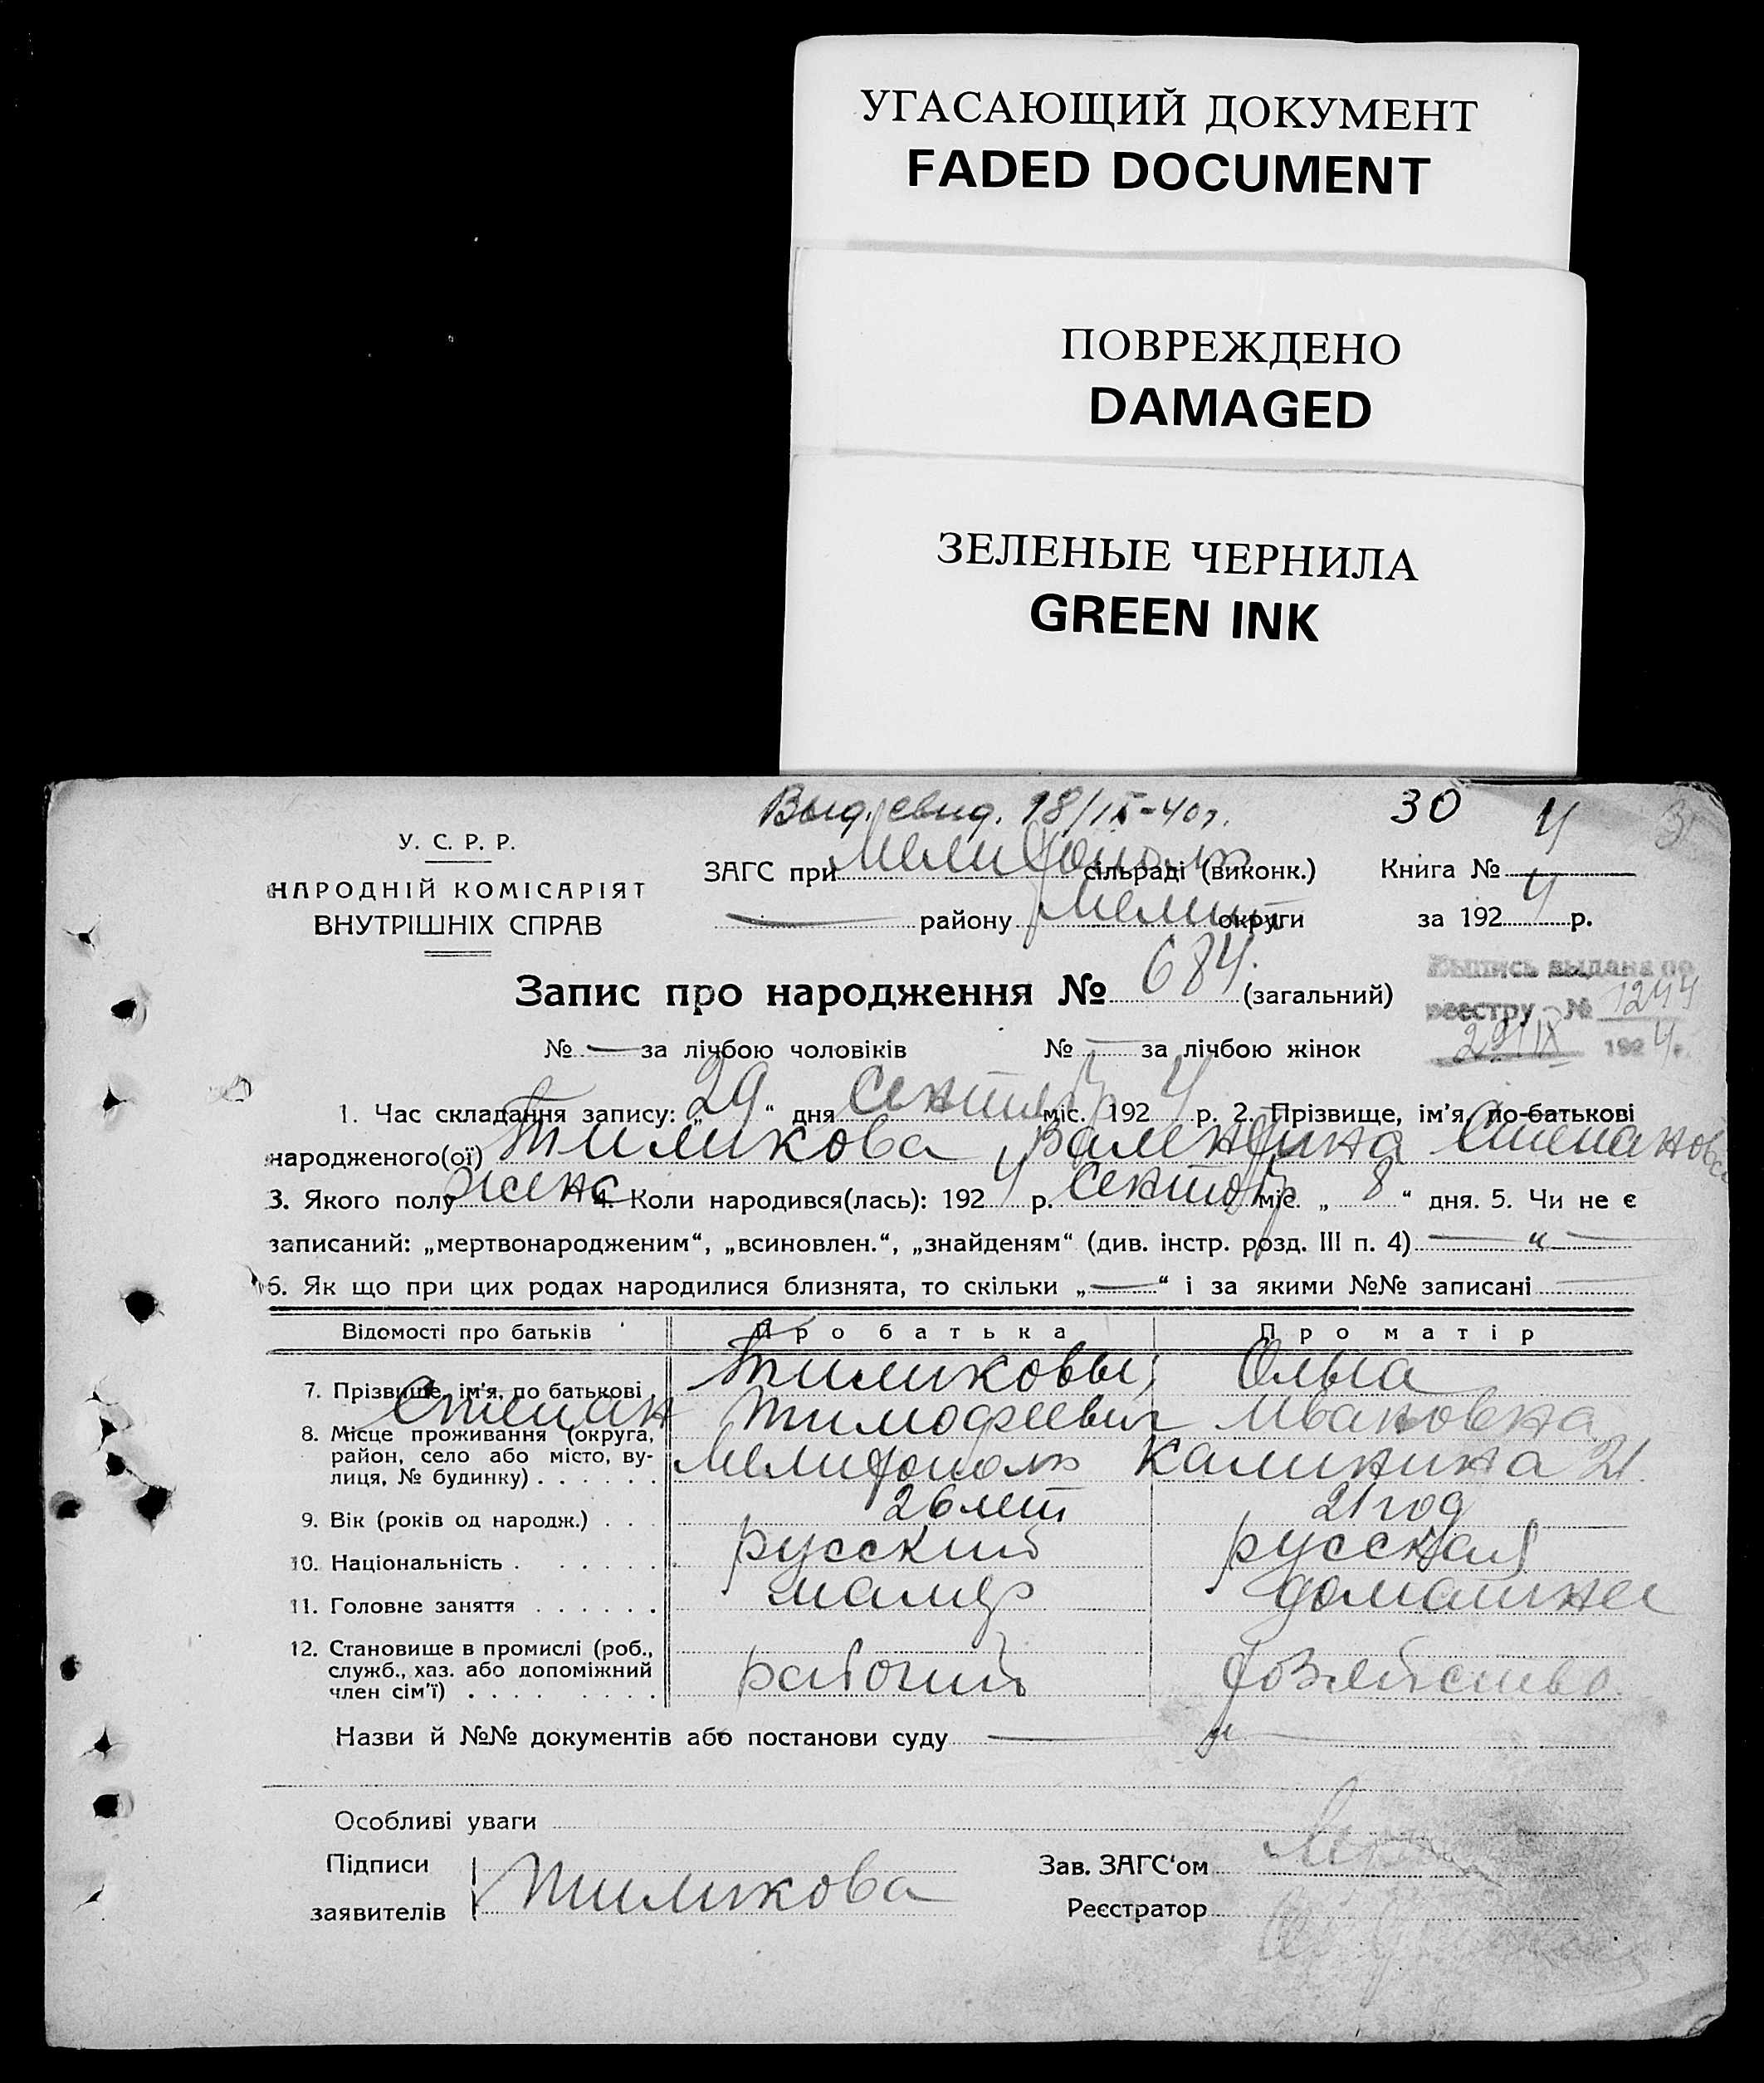 УГАСАЮЩИЙ ДОКУМЕНТ
FADED DOCUMENT
ПОВРЕЖДЕНО
DAMAGED
ЗЕЛЕНЫЕ ЧЕРНИЛА
GREEN INK
Выд. свид. 18/IX-40г.
30 4
У. С. Р. Р.
НАРОДНІЙ КОМІСАРІЯТ
ВНУТРІШНІХ СПРАВ
ЗАГС при Мелитополь сільраді (виконк.)
— району Мелит округи
Книга № 4
за 1924 р.
Запис про народження № 684. (загальний)
Выпись выдана по
реестру № 1244
29/IX 1924 г.
№ — за лічбою чоловіків № — за лічбою жінок
1. Час складання запису: „29“ дня Сентябр міс. 1924 р. 2. Прізвище, ім’я, по-батькові
народженого(ої) Тиликова Валентина Степановна
3. Якого полу женс 4. Коли народився(лась): 1924 р. Сентябр міс. „8“ дня. 5. Чи не є
записаний: „мертвонародженим“, „всиновлен.“, „знайденям“ (див. інстр. розд. III п. 4) — „ —
6. Як що при цих родах народилися близнята, то скільки „—“ і за якими №№ записані —
Відомості про батьків Про батька Про матір
7. Прізвище, ім’я, по батькові Тиликовы, Ольга
Степан Тимофеевич Ивановна
8. Місце проживання (округа, район, село або місто, ву-лиця, № будинку) Мелитополь Калинина 21.
9. Вік (років од народж.) 26 лет 21 год
10. Національність русский русская
11. Головне заняття маляр домашнее
12. Становище в промислі (роб., служб., хаз. або допоміжний член сім’ї) рабочий хозяйство.
Назви й №№ документів або постанови суду — „ —
Особливі уваги
Підписи
заявителів Тиликова
Зав. ЗАГС‘ом
Реєстратор